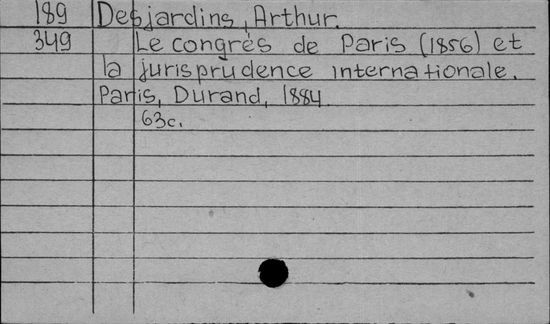 189 Desjardins, Arthur.
349 Le congrès de Paris (1856) et
la jurisprudence internationale.
Paris, Durand, 1884
63c.